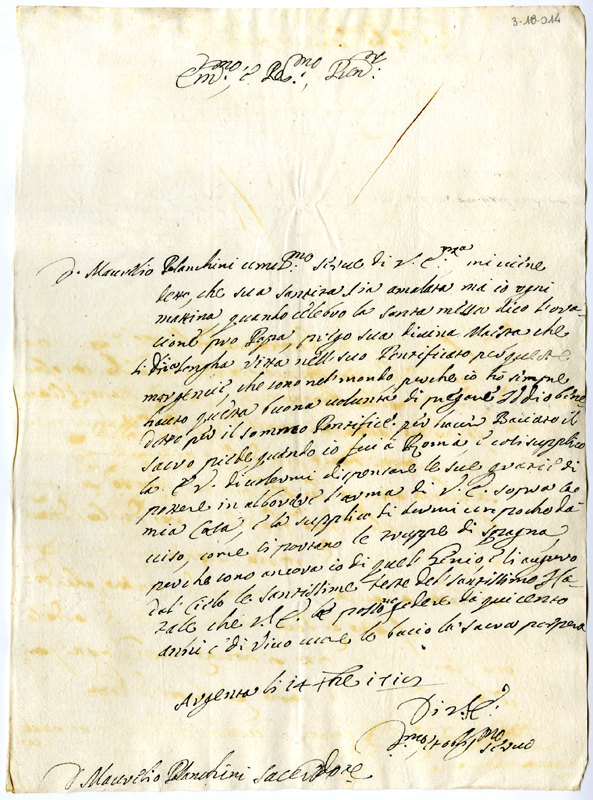 3-18-014
Em.mo, e Re.mo, Pren.pe
D. Maurelio Planchini umi.mo servo di V. E.nza mi viene
detto, che sua santita sia amalata ma io ogni
mattina quando celebro la santa messa dico l'ora-
cione pro Papa priego sua divina Maesta che
li dia longha vitta nell suo Pontificato per queste
che sono nel mondo, perche io ho sempre
hauto questa buona volunta di pregare Iddio bene
detto per il sommo Pontifice per haver Bacciato il
sacro piede quando io fui a Roma, e cosi supplico
la E. V. di volermi dispensare le sue gratie di
potere in alborare l'arma di V. E. sopra la
mia Casa, e la supplico di darmi un pocho d'a-
viso, come si portano le truppe di spagna
perche sono ancora io di quel Genio, e li auguro
dal Cielo le santissime feste del santissimo Na-
tale che V. E. possa godere da quicento
anni e di vivo cuore le bacio la sacra porpora
Argenta li 24 Xbre
Di V. E.
servo
D. Maurelio Planchini sacerdote